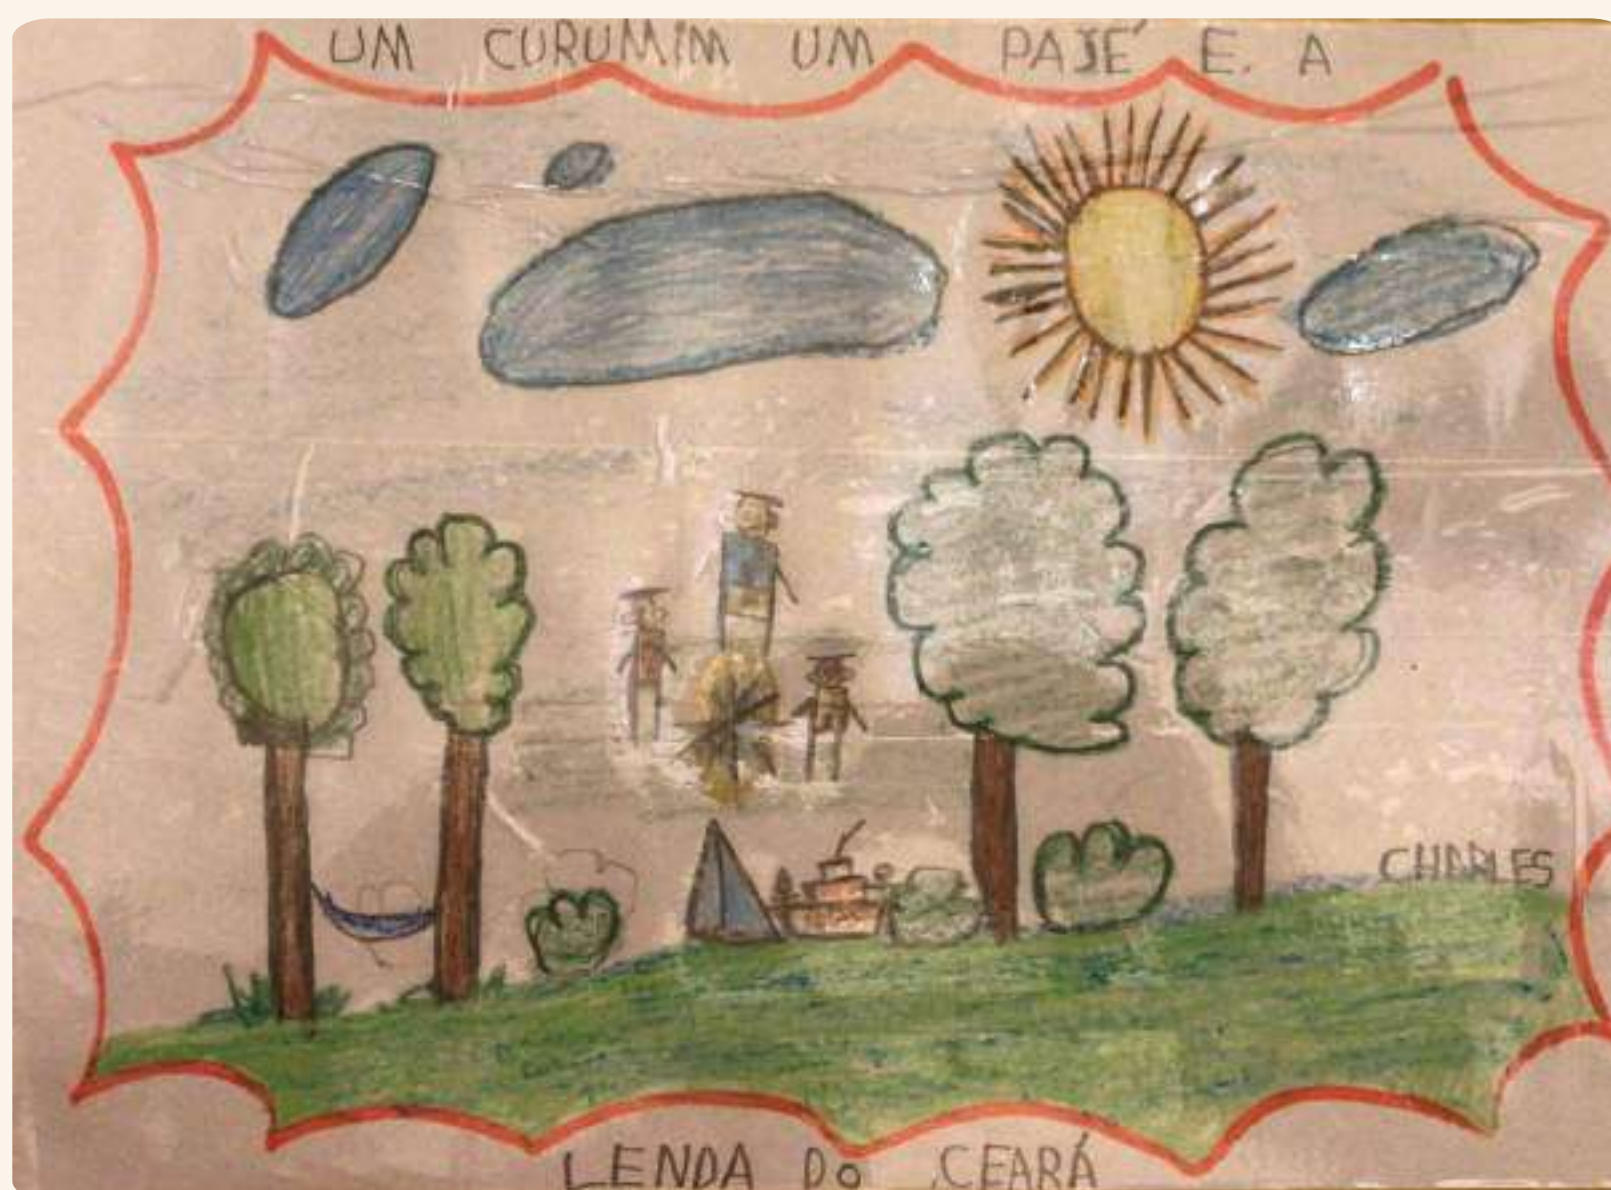 UM CURUMIM UM PAJÉ E. A
CHARLES
LENDA DO CEARÁ